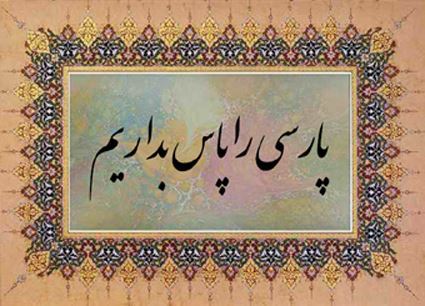 پارسی را پاس بداریم